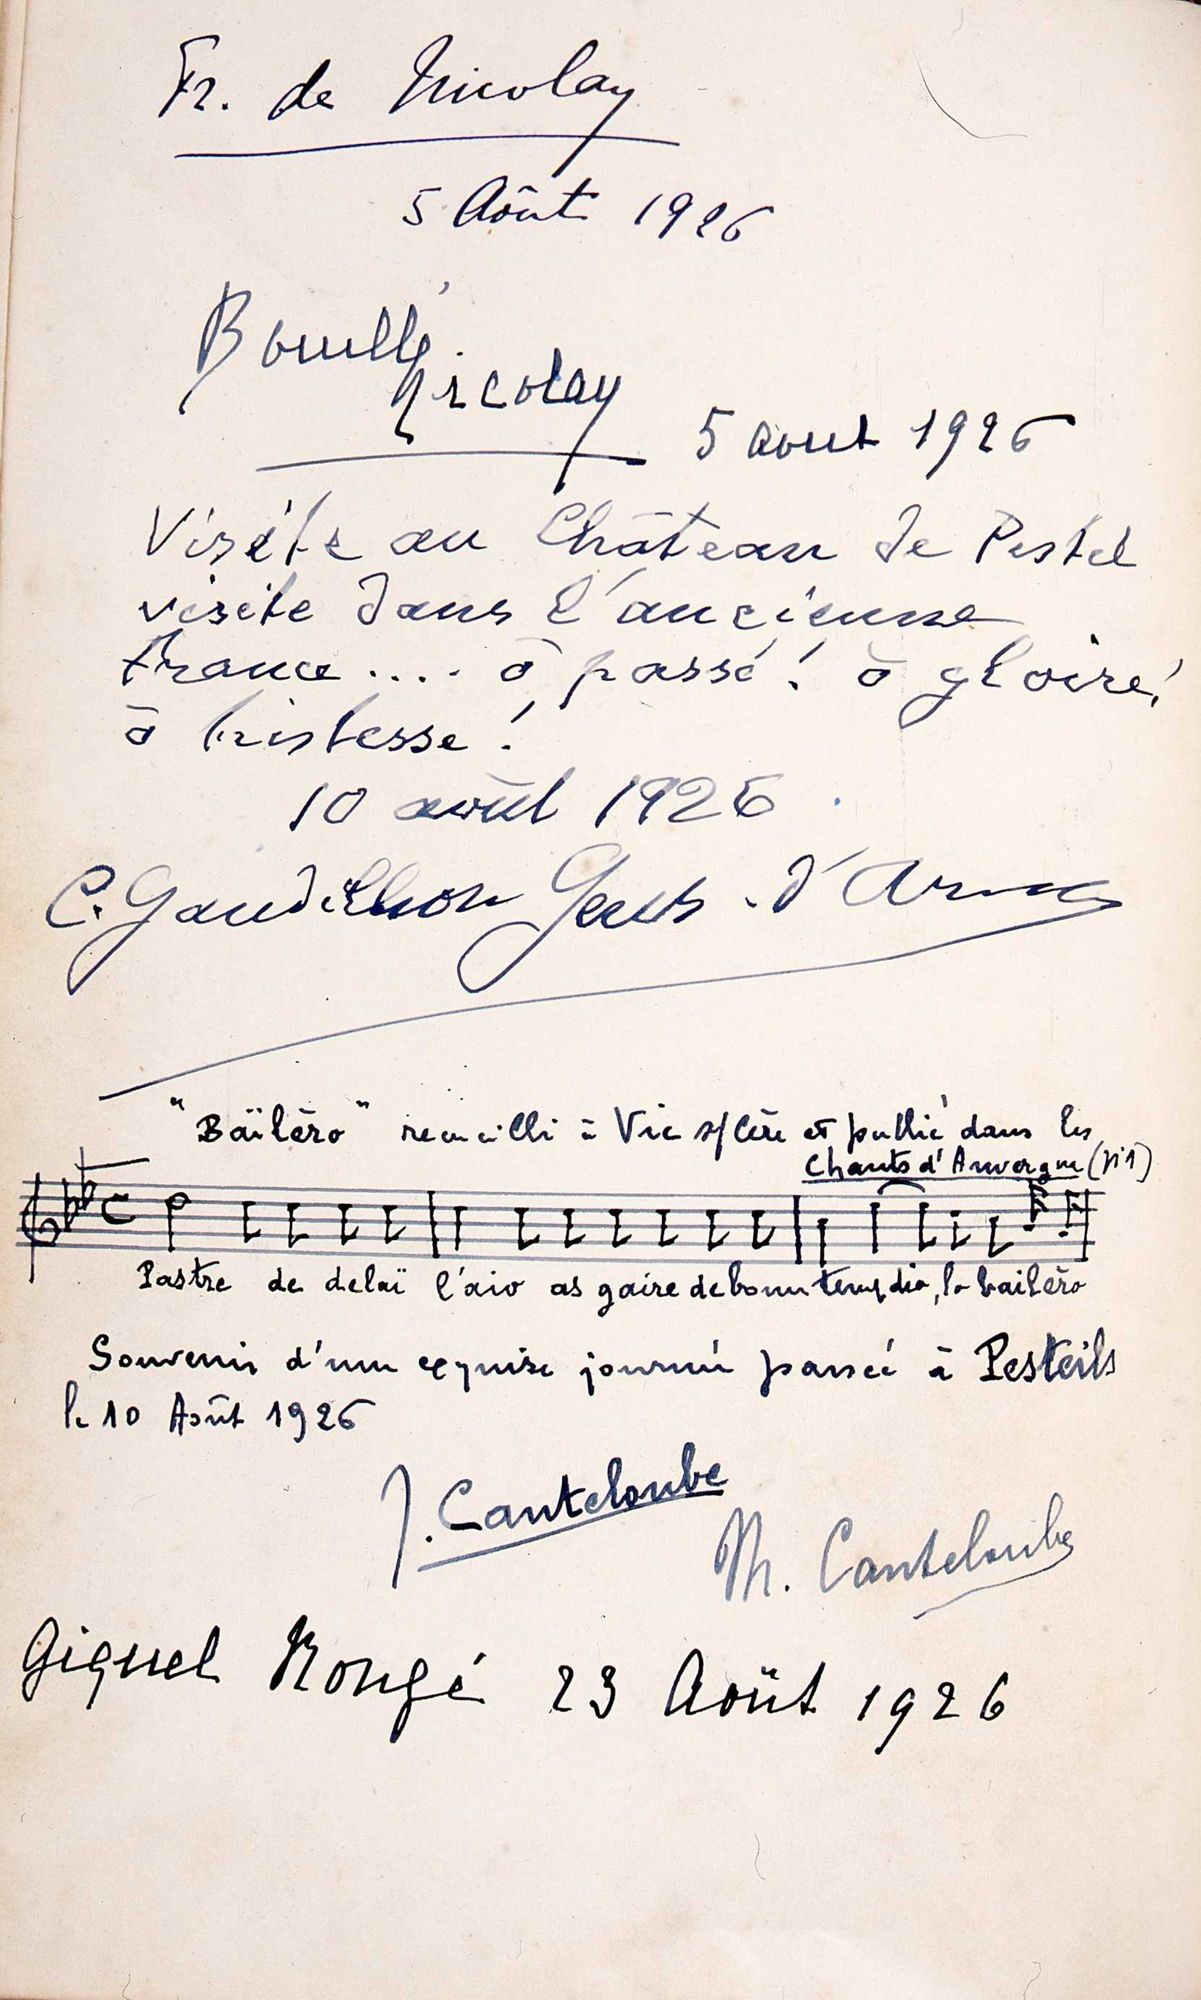 Fr. de Nicolay
5 Aôut 1926
Bouillé
Nicolay
5 aout 1926
Visite au Château de Pestel
visite dans l'ancienne
France .... ô passé! ô gloire!
ô tristesse!
10 août 1926
C. Gandilhon Gens-d'Armes
"Baïlèro" recueilli à Vic s/Cère et publié dans les
Chants d'Auvergne (N°1)
Pastre de delaï l'aïo as gaire de boun temps dio, lo baïlèro
Souvenir d'une exquise journée passée à Pesteils
le 10 Août 1926
J. Canteloube
Ch. Canteloube
Giquel Rongé 23 Août 1926